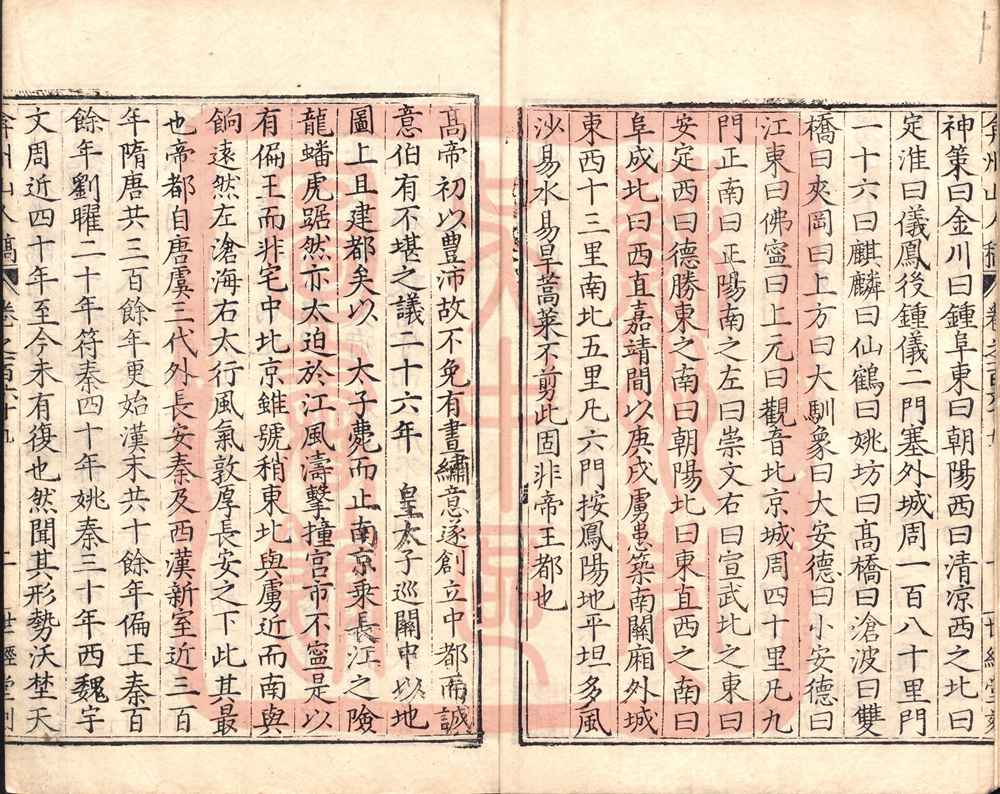 弇州山人稿 卷之百六十九 十一 世經堂刻
神策曰金川曰鍾阜東曰朝陽西曰清凉西之北曰
定淮曰儀鳳後鍾儀二門塞外城周一百八十里門
一十六曰麒麟曰仙鶴曰姚坊曰髙橋曰滄波曰雙
橋曰夾岡曰上方曰大馴象曰大安德曰小安德曰
江東曰佛寧曰上元曰觀音北京城周四十里凡九
門正南曰正陽南之左曰崇文右曰宣武北之東曰
安定西曰德勝東之南曰朝陽北曰東直西之南曰
阜成北曰西直嘉靖間以庚戌虜患築南關廂外城
東西十三里南北五里凡六門按鳳陽地平坦多風
沙易水易旱蒿萊不剪此固非帝王都也
髙帝初以豊沛故不免有晝繡意遂創立中都而誠
意伯有不堪之議二十六年 皇太子巡關中以地
圖上且建都矣以 太子薨而止南京乗長江之險
龍蟠虎踞然亦太迫於江風濤擊撞宫市不寧是以
有偏王而非宅中北京雖號稍東北與虜近而南與
餉遠然左滄海右太行風氣敦厚長安之下此其最
也帝都自唐虞三代外長安秦及西漢新室近三百
年隋唐共三百餘年更始漢末共十餘年偏王秦百
餘年劉曜二十年符秦四十年姚秦三十年西魏宇
文周近四十年至今未有復也然聞其形勢沃壄天
弇州山人稿 卷之百六十九 十二 世經堂刻